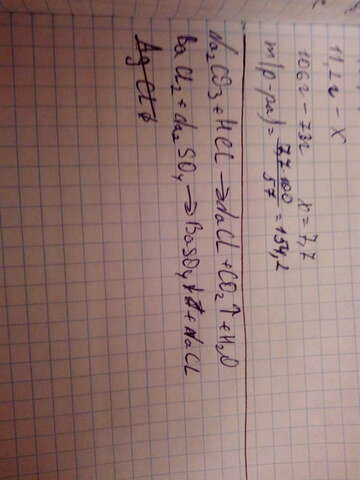 11,2г - x
106г - 73г    x = 7,7
m(р-ра) = 7,7·100 / 5% = 154,2
Na2CO3 + HCl → NaCl + CO2↑ + H2O
BaCl2 + Na2SO4 → BaSO4↓ + NaCl
AgCl↓